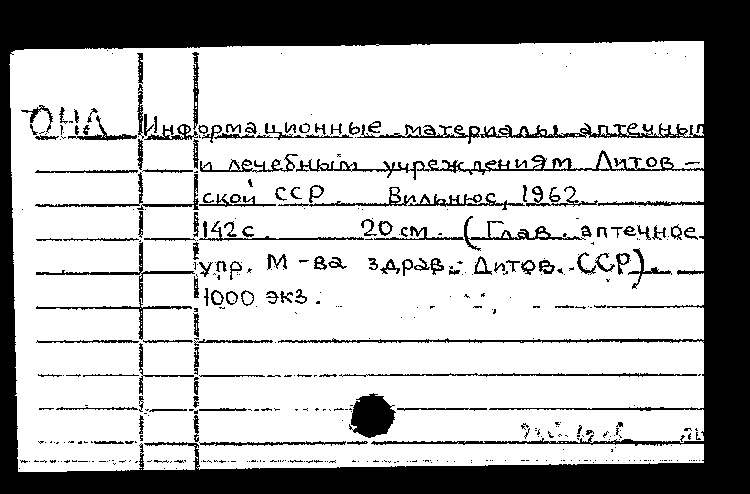 ОНЛ Информационные материалы аптечным
и лечебным учреждениям Литов –
ской ССР. Вильнюс, 1962.
142 с. 20 см. (Глав. аптечное
упр. М-ва здрав. Литов. ССР).
1000 экз.